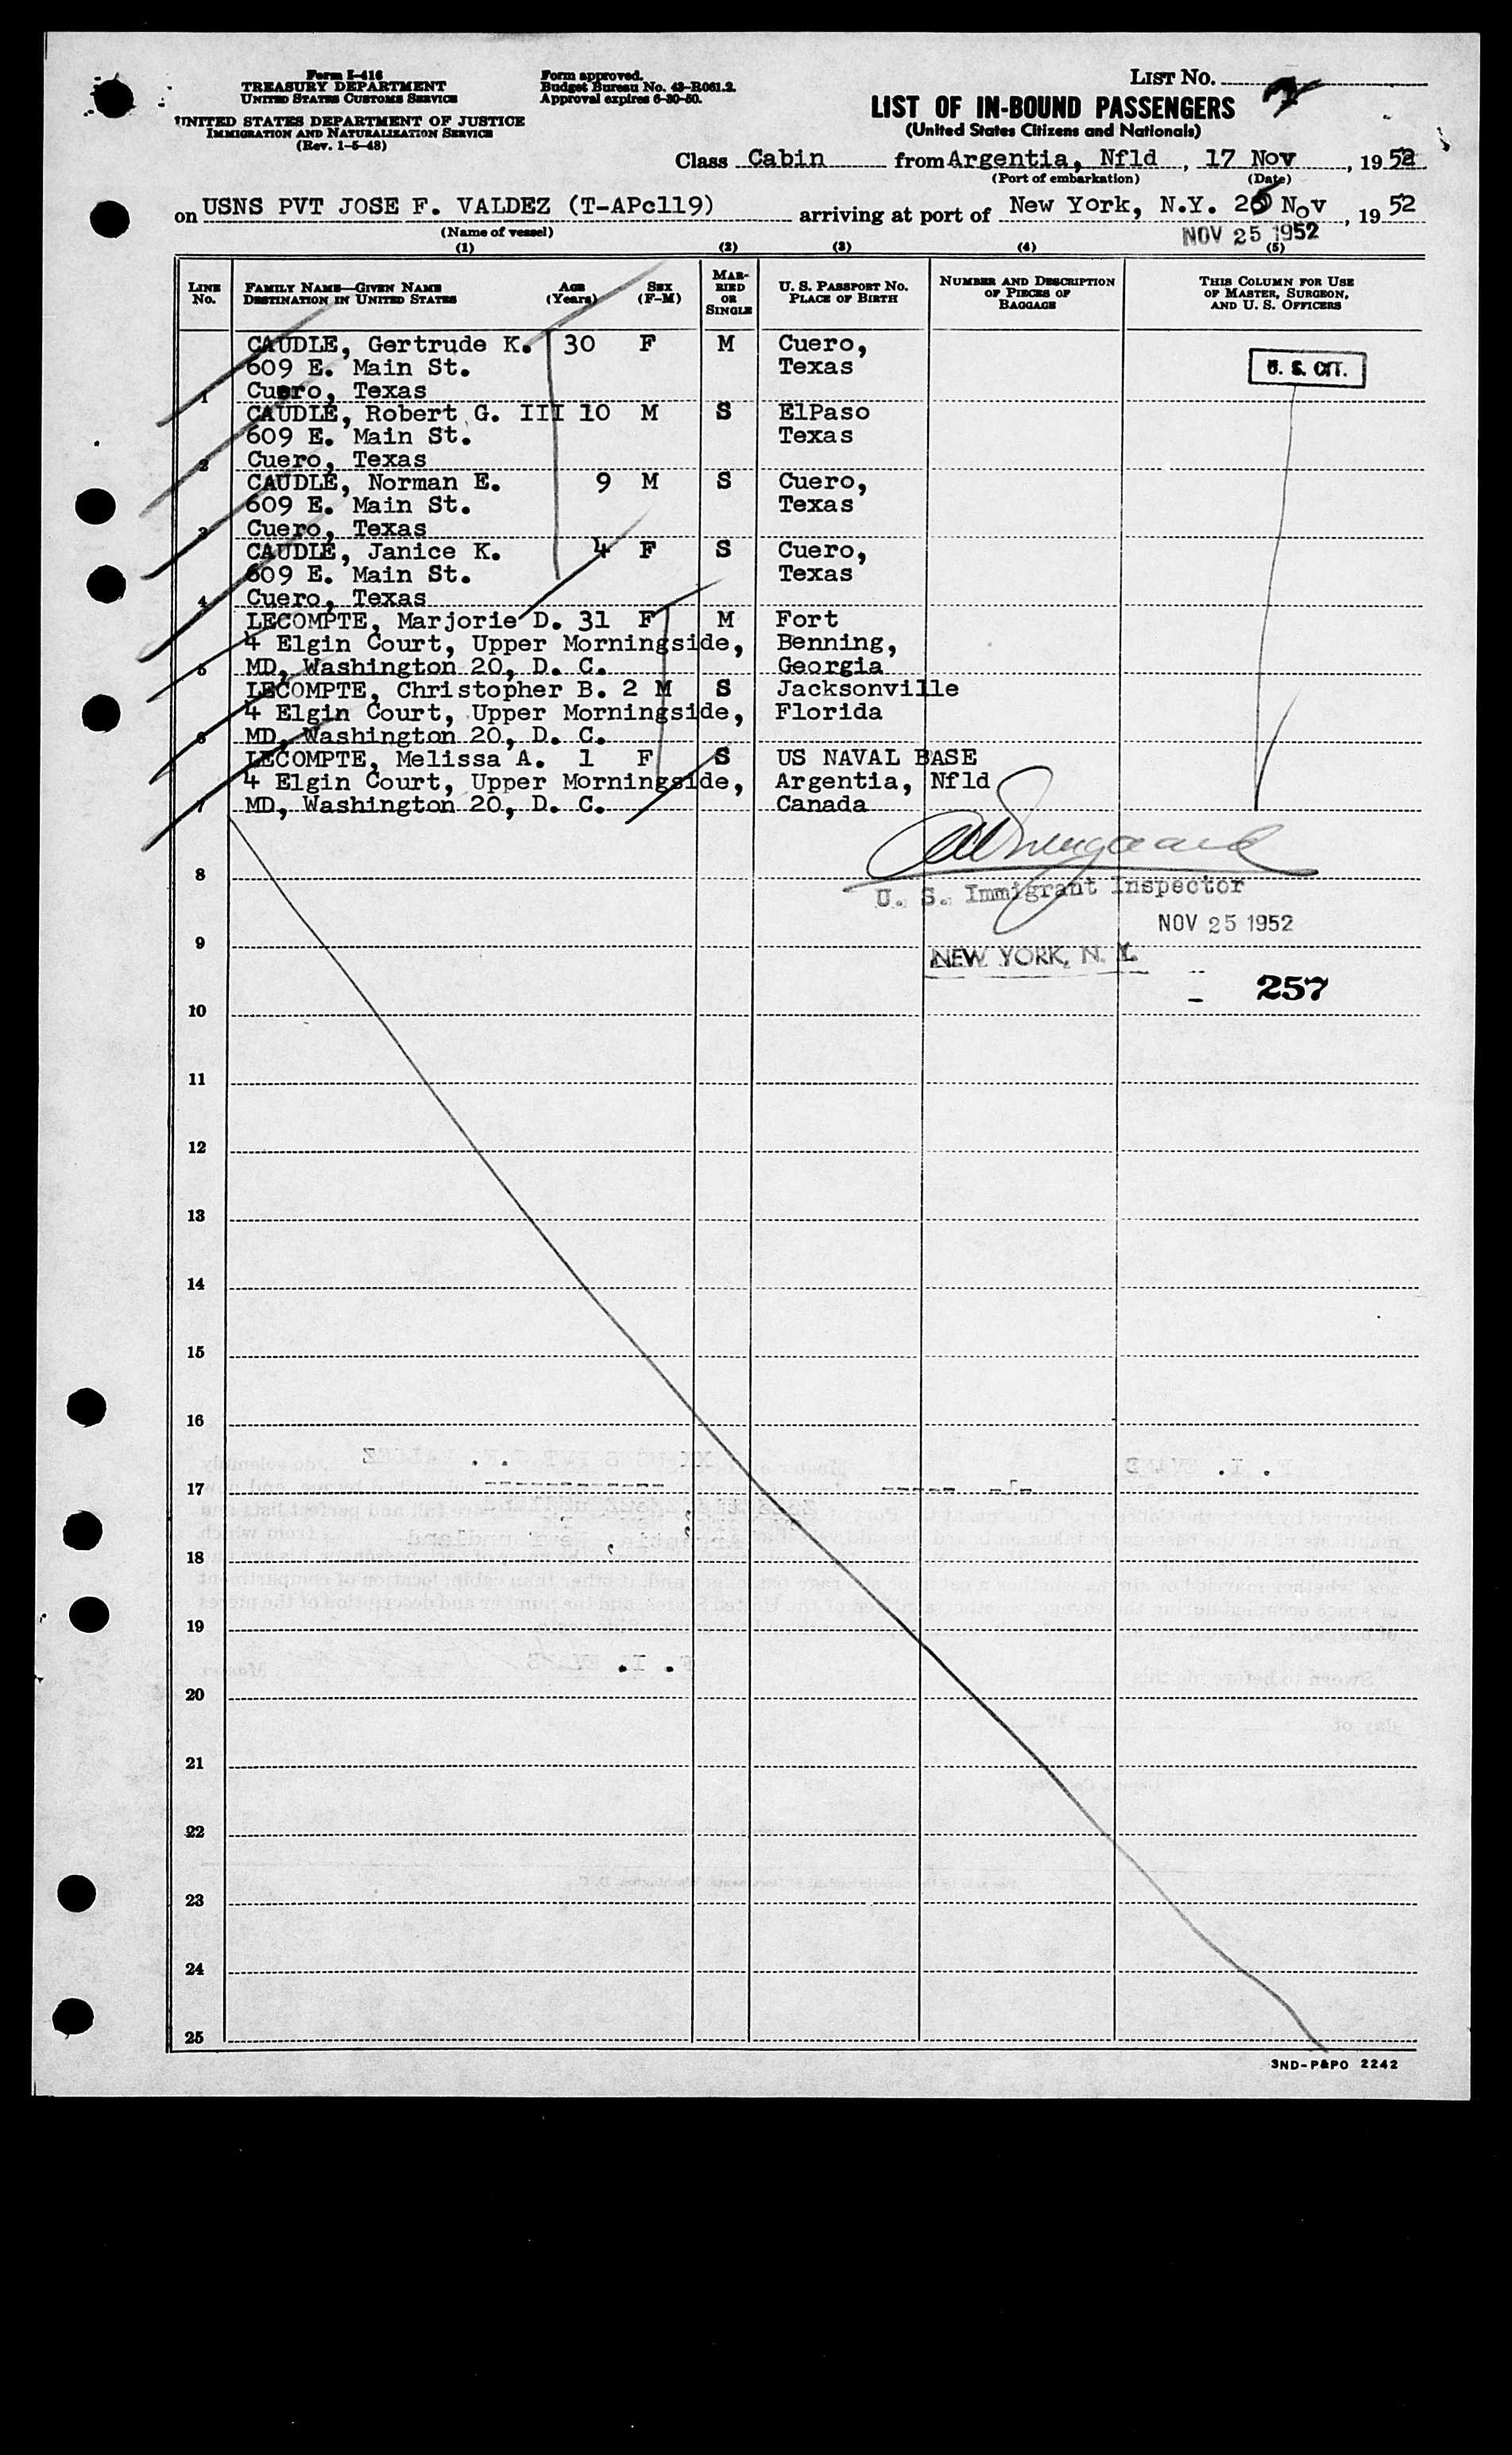 Form I-416
TREASURY DEPARTMENT
UNITED STATES CUSTOMS SERVICE
UNITED STATES DEPARTMENT OF JUSTICE
IMMIGRATION AND NATURALIZATION SERVICE
(Rev. 1-5-48)
Form approved.
Budget Bureau No. 43-R061.2.
Approval expires 6-30-50.
LIST No. 2
LIST OF IN-BOUND PASSENGERS
(United States Citizens and Nationals)
Class Cabin from Argentia, Nfld, 17 Nov, 1952
(Port of embarkation) (Date)
on USNS PVT JOSE F. VALDEZ (T-APc119) arriving at port of New York, N.Y. 25 Nov, 19 52
(Name of vessel)
NOV 25 1952
(1) (2) (3) (4) (5)
LINE No.
FAMILY NAME—GIVEN NAME
DESTINATION IN UNITED STATES
AGE (Years)
SEX (F-M)
MARRIED OR SINGLE
U. S. PASSPORT NO.
PLACE OF BIRTH
NUMBER AND DESCRIPTION OF PIECES OF BAGGAGE
THIS COLUMN FOR USE OF MASTER, SURGEON, AND U. S. OFFICERS
CAUDLE, Gertrude K. 30 F M Cuero,
609 E. Main St. Texas
1 Cuero, Texas
U. S. CIT.
CAUDLE, Robert G. III 10 M S ElPaso
609 E. Main St. Texas
2 Cuero, Texas
CAUDLE, Norman E. 9 M S Cuero,
609 E. Main St. Texas
3 Cuero, Texas
CAUDLE, Janice K. 4 F S Cuero,
609 E. Main St. Texas
4 Cuero, Texas
LECOMPTE, Marjorie D. 31 F M Fort
4 Elgin Court, Upper Morningside, Benning,
5 MD, Washington 20, D. C. Georgia
LECOMPTE, Christopher B. 2 M S Jacksonville
4 Elgin Court, Upper Morningside, Florida
6 MD, Washington 20, D. C.
LECOMPTE, Melissa A. 1 F S US NAVAL BASE
4 Elgin Court, Upper Morningside, Argentia, Nfld
7 MD, Washington 20, D. C. Canada
8
U. S. Immigrant Inspector
NOV 25 1952
9
NEW YORK, N. Y.
257
10
11
12
13
14
15
16
17
18
19
20
21
22
23
24
25
3ND-P&PO 2242